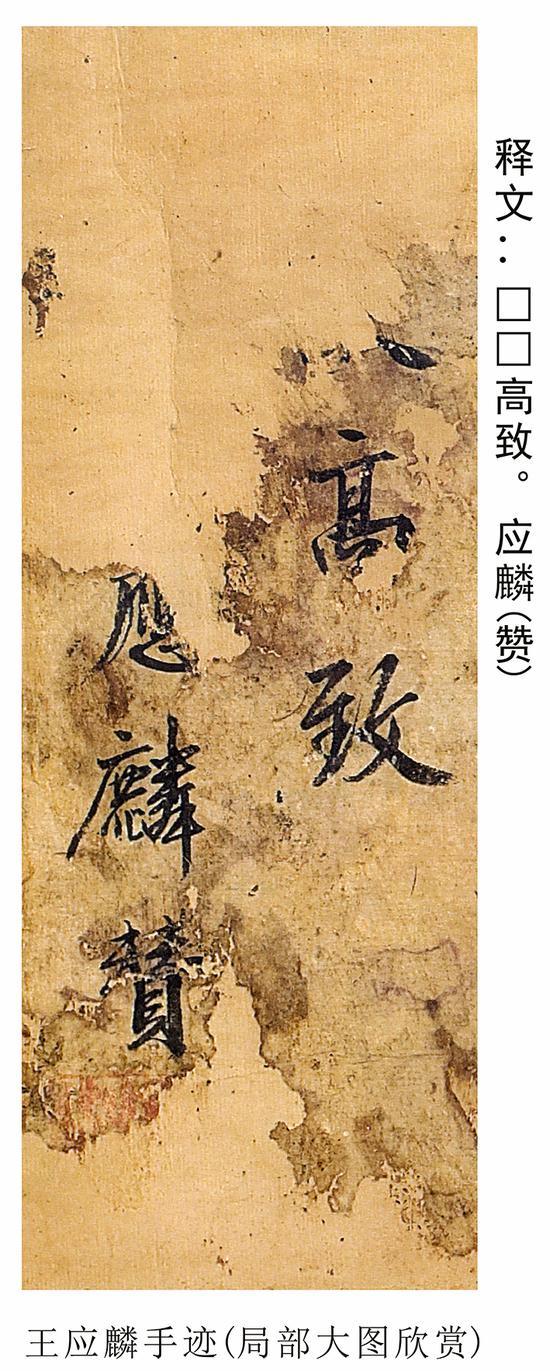 释文：□□高致。应麟(赞)
高致
應麟贊
王应麟手迹(局部大图欣赏)